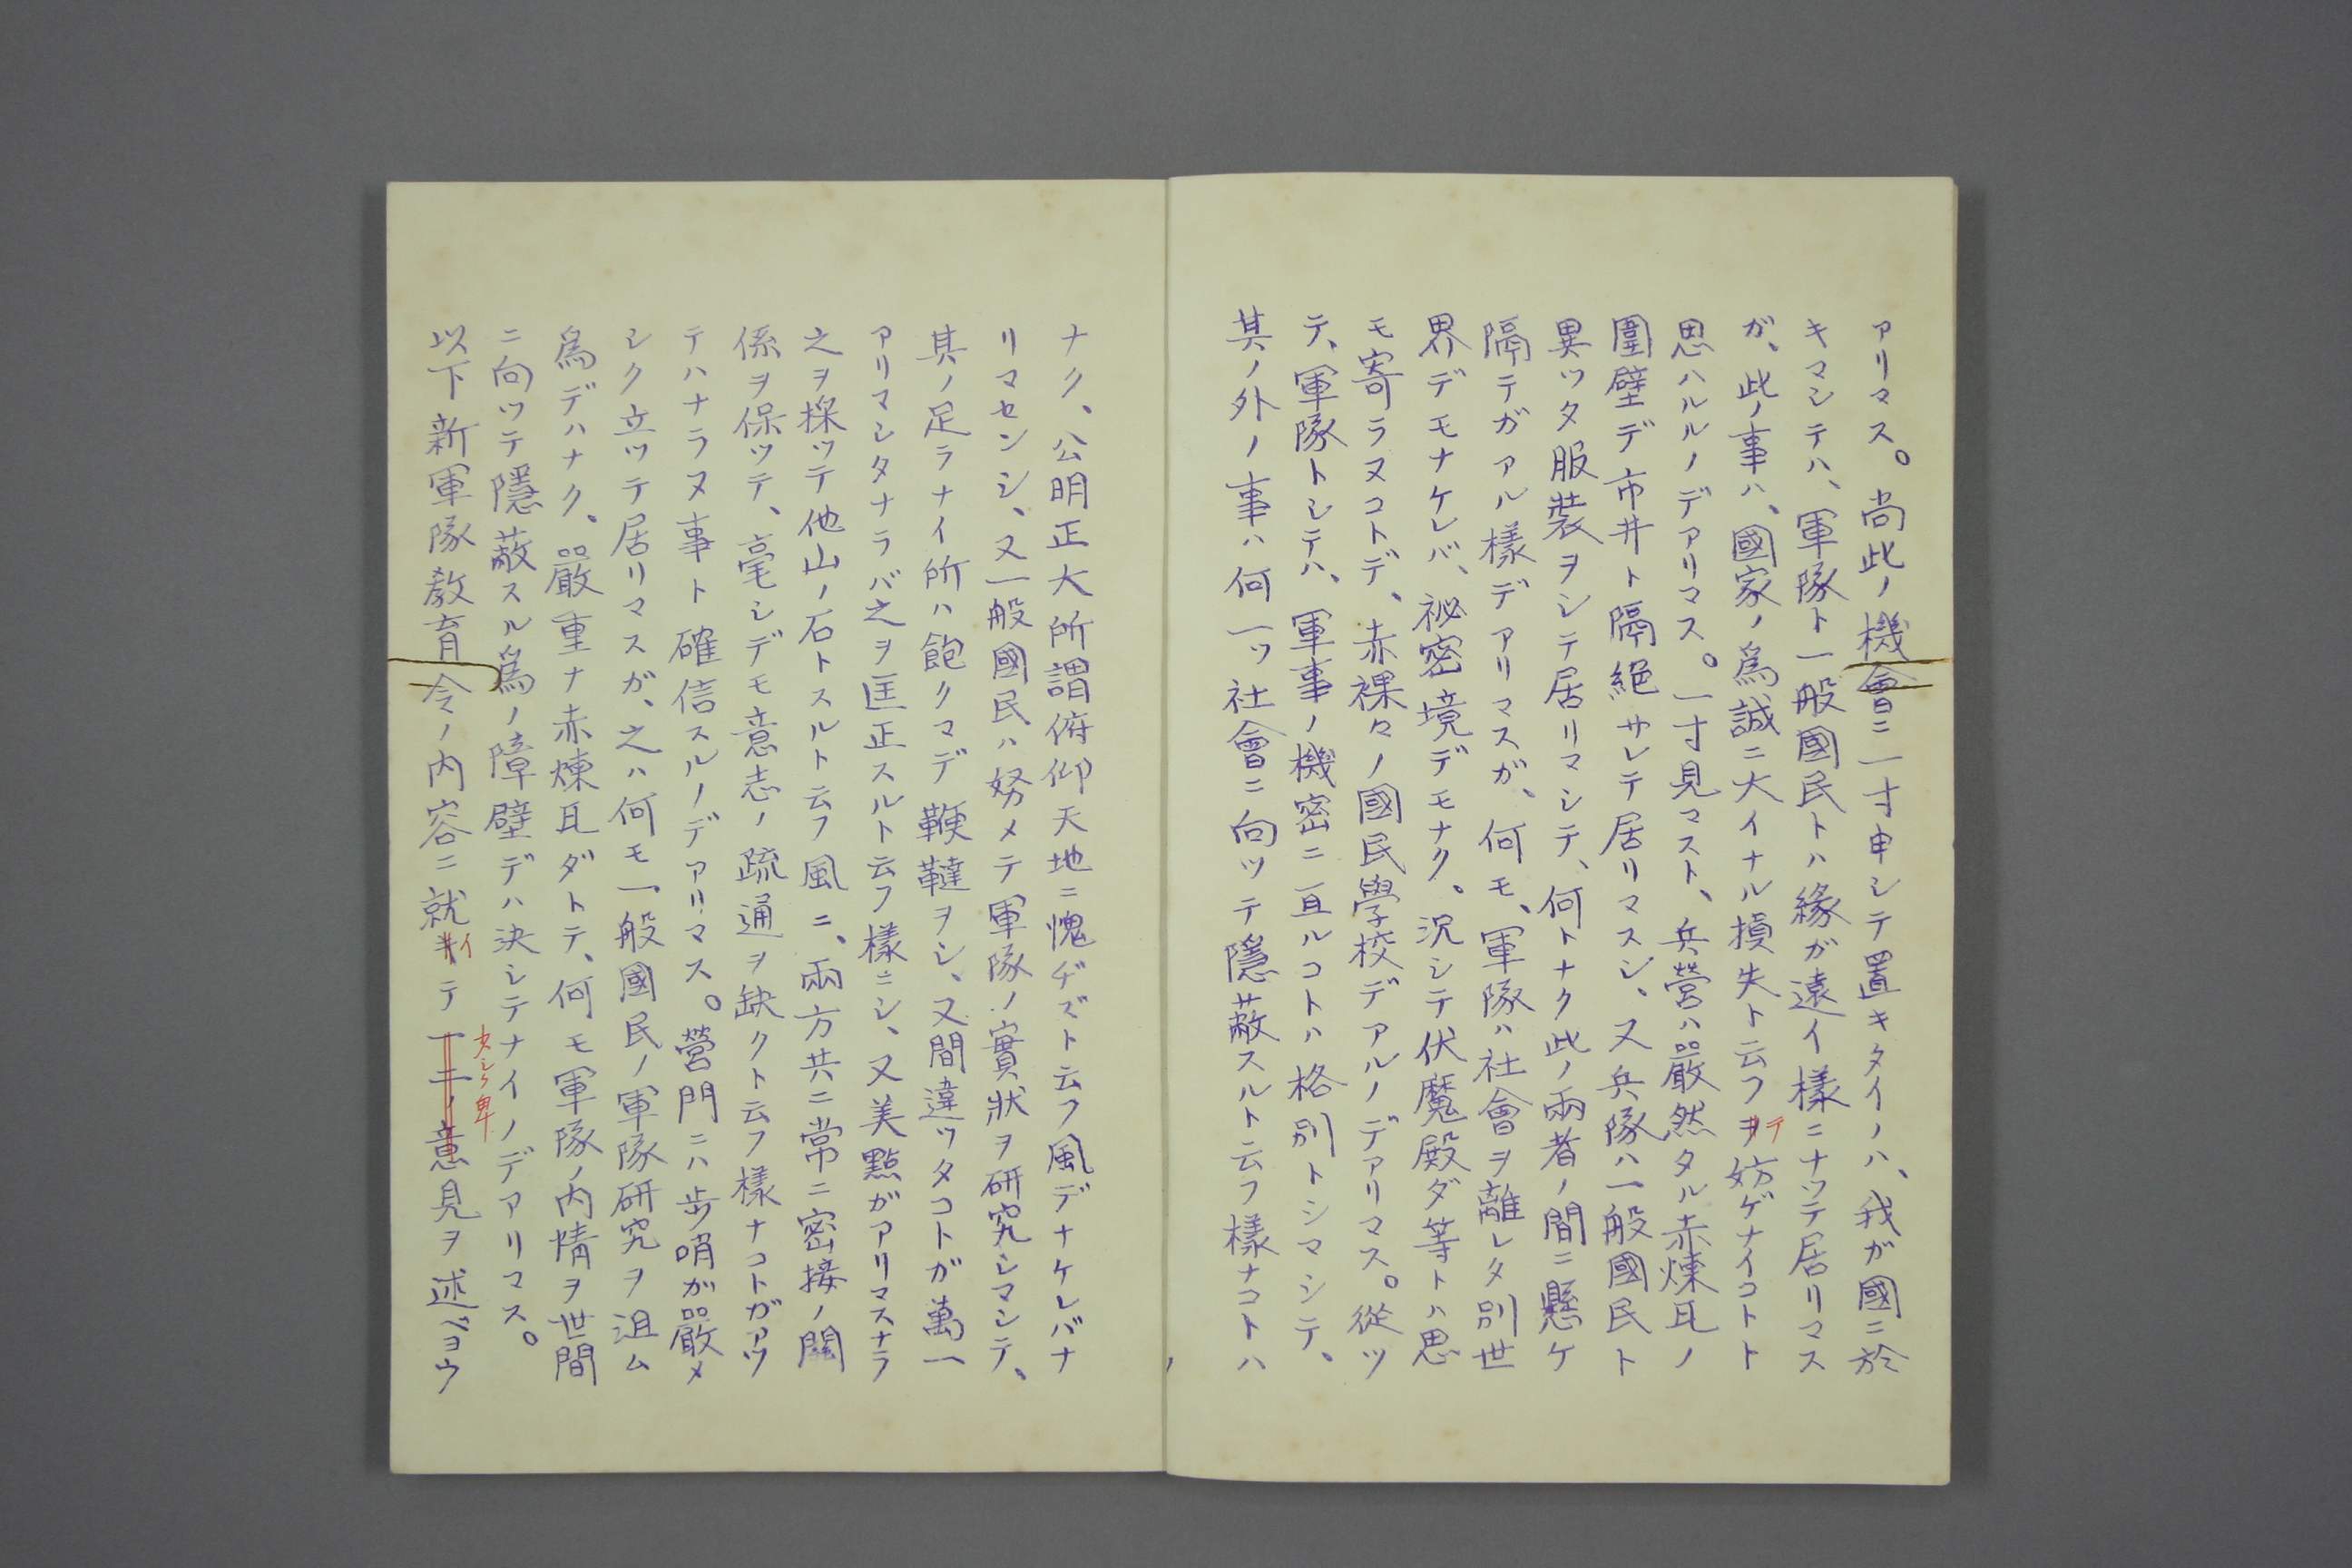 アリマス。尚此ノ機會ニ一寸申シテ置キタイノハ、我ガ國ニ於
キマシテハ、軍隊ト一般國民トハ緣ガ遠イ樣ニナツテ居リマス
ガ、此ノ事ハ、國家ノ爲誠ニ大イナル損失ト云フヲテ妨ゲナイコトト
思ハルルノデアリマス。一寸見マスト、兵營ハ嚴然タル赤煉瓦ノ
圍壁デ市井ト隔絕サレテ居リマスシ、又兵隊ハ一般國民ト
異ツタ服裝ヲシテ居リマシテ、何トナク此ノ兩者ノ間ニ懸ケ
隔テガアル樣デアリマスガ、何モ、軍隊ハ社會ヲ離レタ別世
界デモナケレバ、祕密境デモナク。況シテ伏魔殿ダ等トハ思
モ寄ラヌコトデ、赤裸々ノ國民學校デアルノデアリマス。從ツ
テ、軍隊トシテハ、軍事ノ機密ニ亘ルコトハ格別トシマシテ、
其ノ外ノ事ハ何一ツ社會ニ向ツテ隱蔽スルト云フ樣ナコトハ
ナク、公明正大所謂俯仰天地ニ愧ヂズト云フ風デナケレバナ
リマセンシ、又一般國民ハ努メテ軍隊ノ實狀ヲ硏究シマシテ、
其ノ足ラナイ所ハ飽クマデ鞭韃ヲシ、又間違ツタコトガ萬一
アリマシタナラバ之ヲ匡正スルト云フ樣ニシ、又美點ガアリマスナラ
之ヲ採ツテ他山ノ石トスルト云フ風ニ、兩方共ニ常ニ密接ノ關
係ヲ保ツテ、毫シデモ意志ノ疏通ヲ缺クト云フ樣ナコトガアツ
テハナラヌ事ト確信スルノデアリマス。營門ニハ步哨ガ嚴メ
シク立ツテ居リマスガ、之ハ何モ一般國民ノ軍隊硏究ヲ沮ム
爲デハナク、嚴重ナ赤煉瓦ダトテ、何モ軍隊ノ內情ヲ世間
ニ向ツテ隱蔽スル爲ノ障壁デハ決シテナイノデアリマス。
以下新軍隊敎育令ノ內容ニ就キイテ一二ノ意見ヲ述ベヨウ